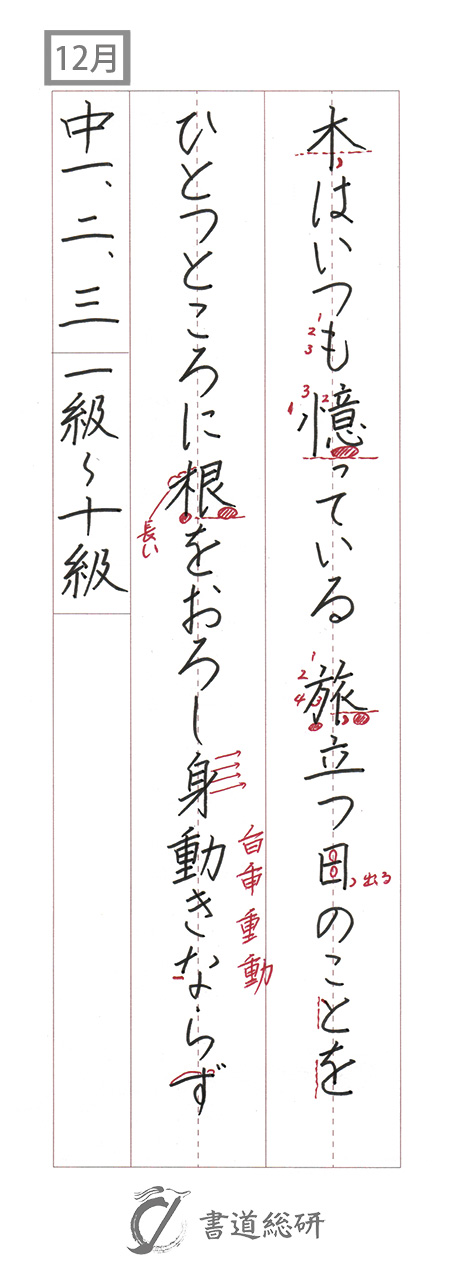 12月
木はいつも憶っている 旅立つ日のことを
ひとつところに根をおろし身動きならず
中一、二、三 一級〜十級
1
2
3
3
2
1
1
2
4
3
出る
長い
重
動
書道総研